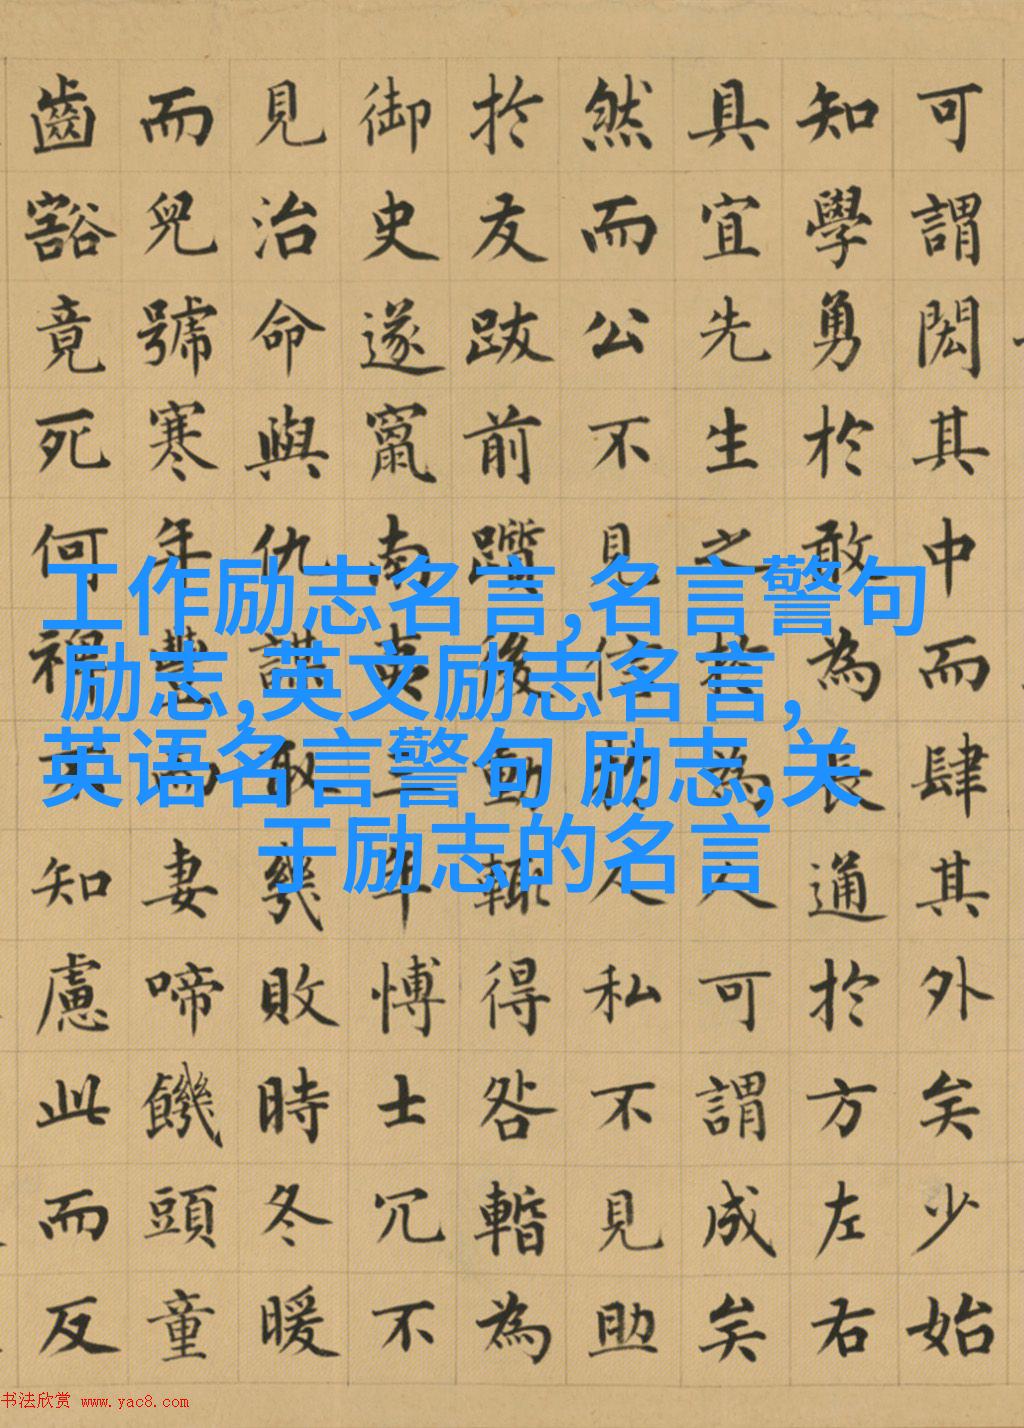 可謂閎其中而肆其外矣少始
知學勇於敢為長通於方左右
具宜先生之於為人可謂成矣
然而公不見信於人私不見助
於友跋前躓後動輒得咎暫為
御史遂竄南夷三年愽士冗不
見治命與仇謀取幾敗時冬暖
而兒號寒年豐而妻啼饑頭童
齒豁竟死何裨不知慮此而反
工作励志名言,名言警句
励志,英文励志名言,
英语名言警句 励志,关
于励志的名言
书法欣赏 www.yac8.com